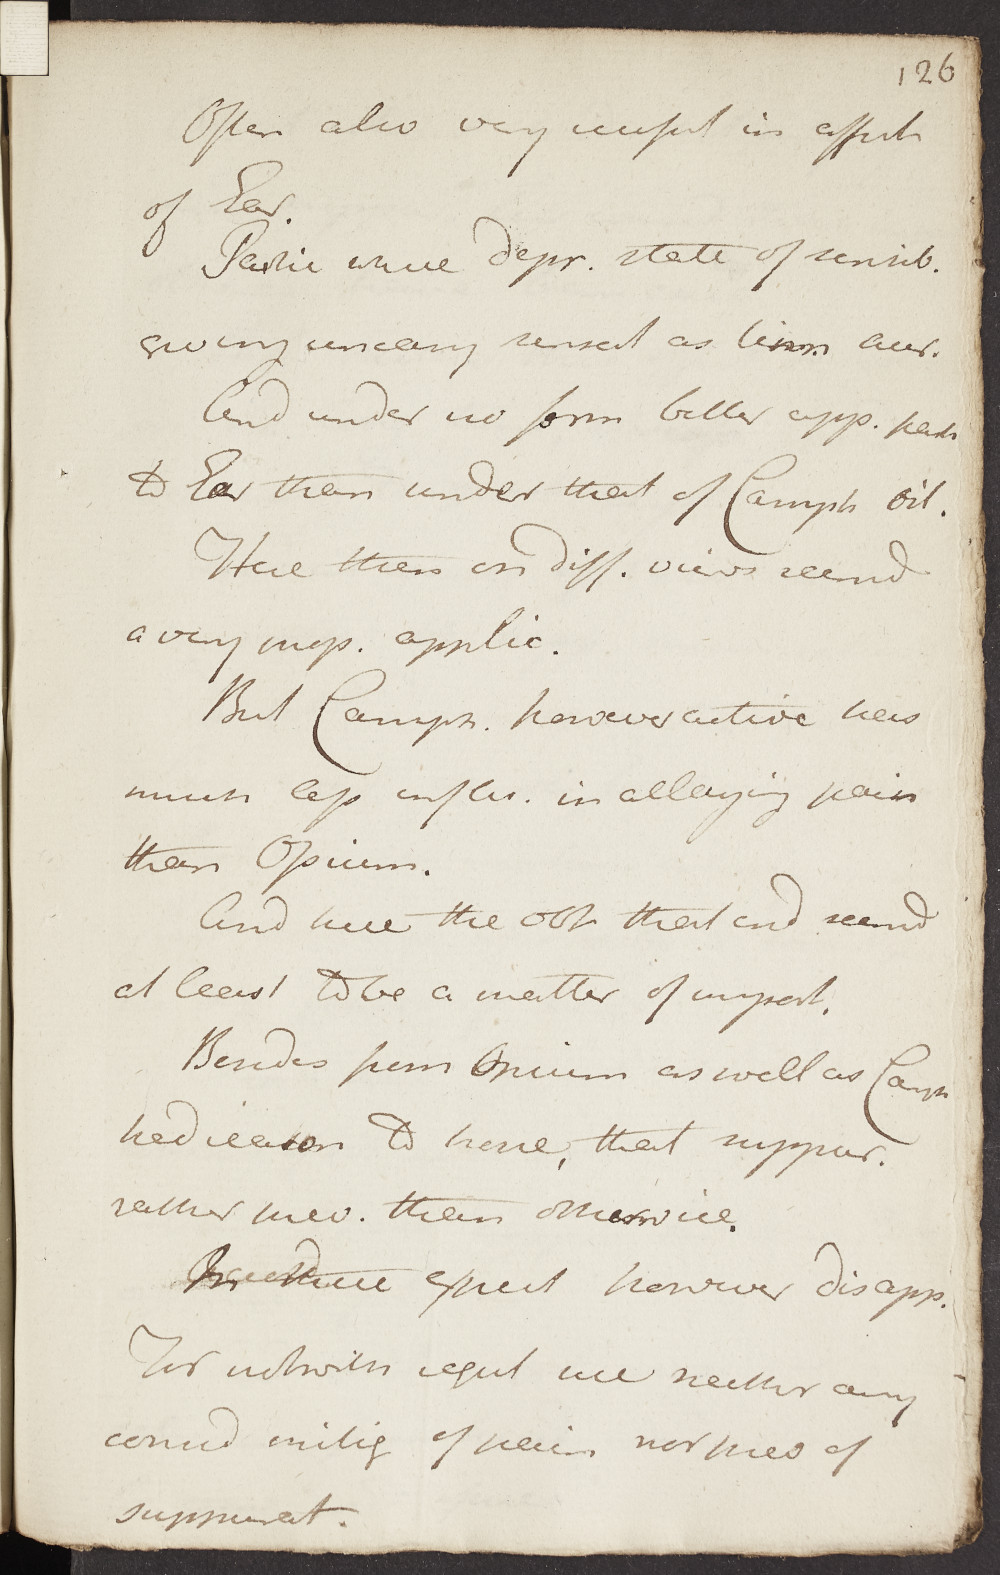 126
Often also very usefull in affect
of Ear.
Partic where depr. state of sensib.
giving uneasy sensat as tinn. aur.
And under no form better app. perh
to Ear than under that of Camph oil.
Here then on diff. views seemd
a very prop. applic.
But Camph. however active has
much less influ. in allaying pain
than Opium.
And here the obt that end seemd
at least to be a matter of import.
Besides from Opium as well as Camph
had reason to hope, that suppur.
rather prev. than otherwise.
In these expect however disapp.
For notwith regul use neither any
consid mitig of pain nor prev of
suppurat.